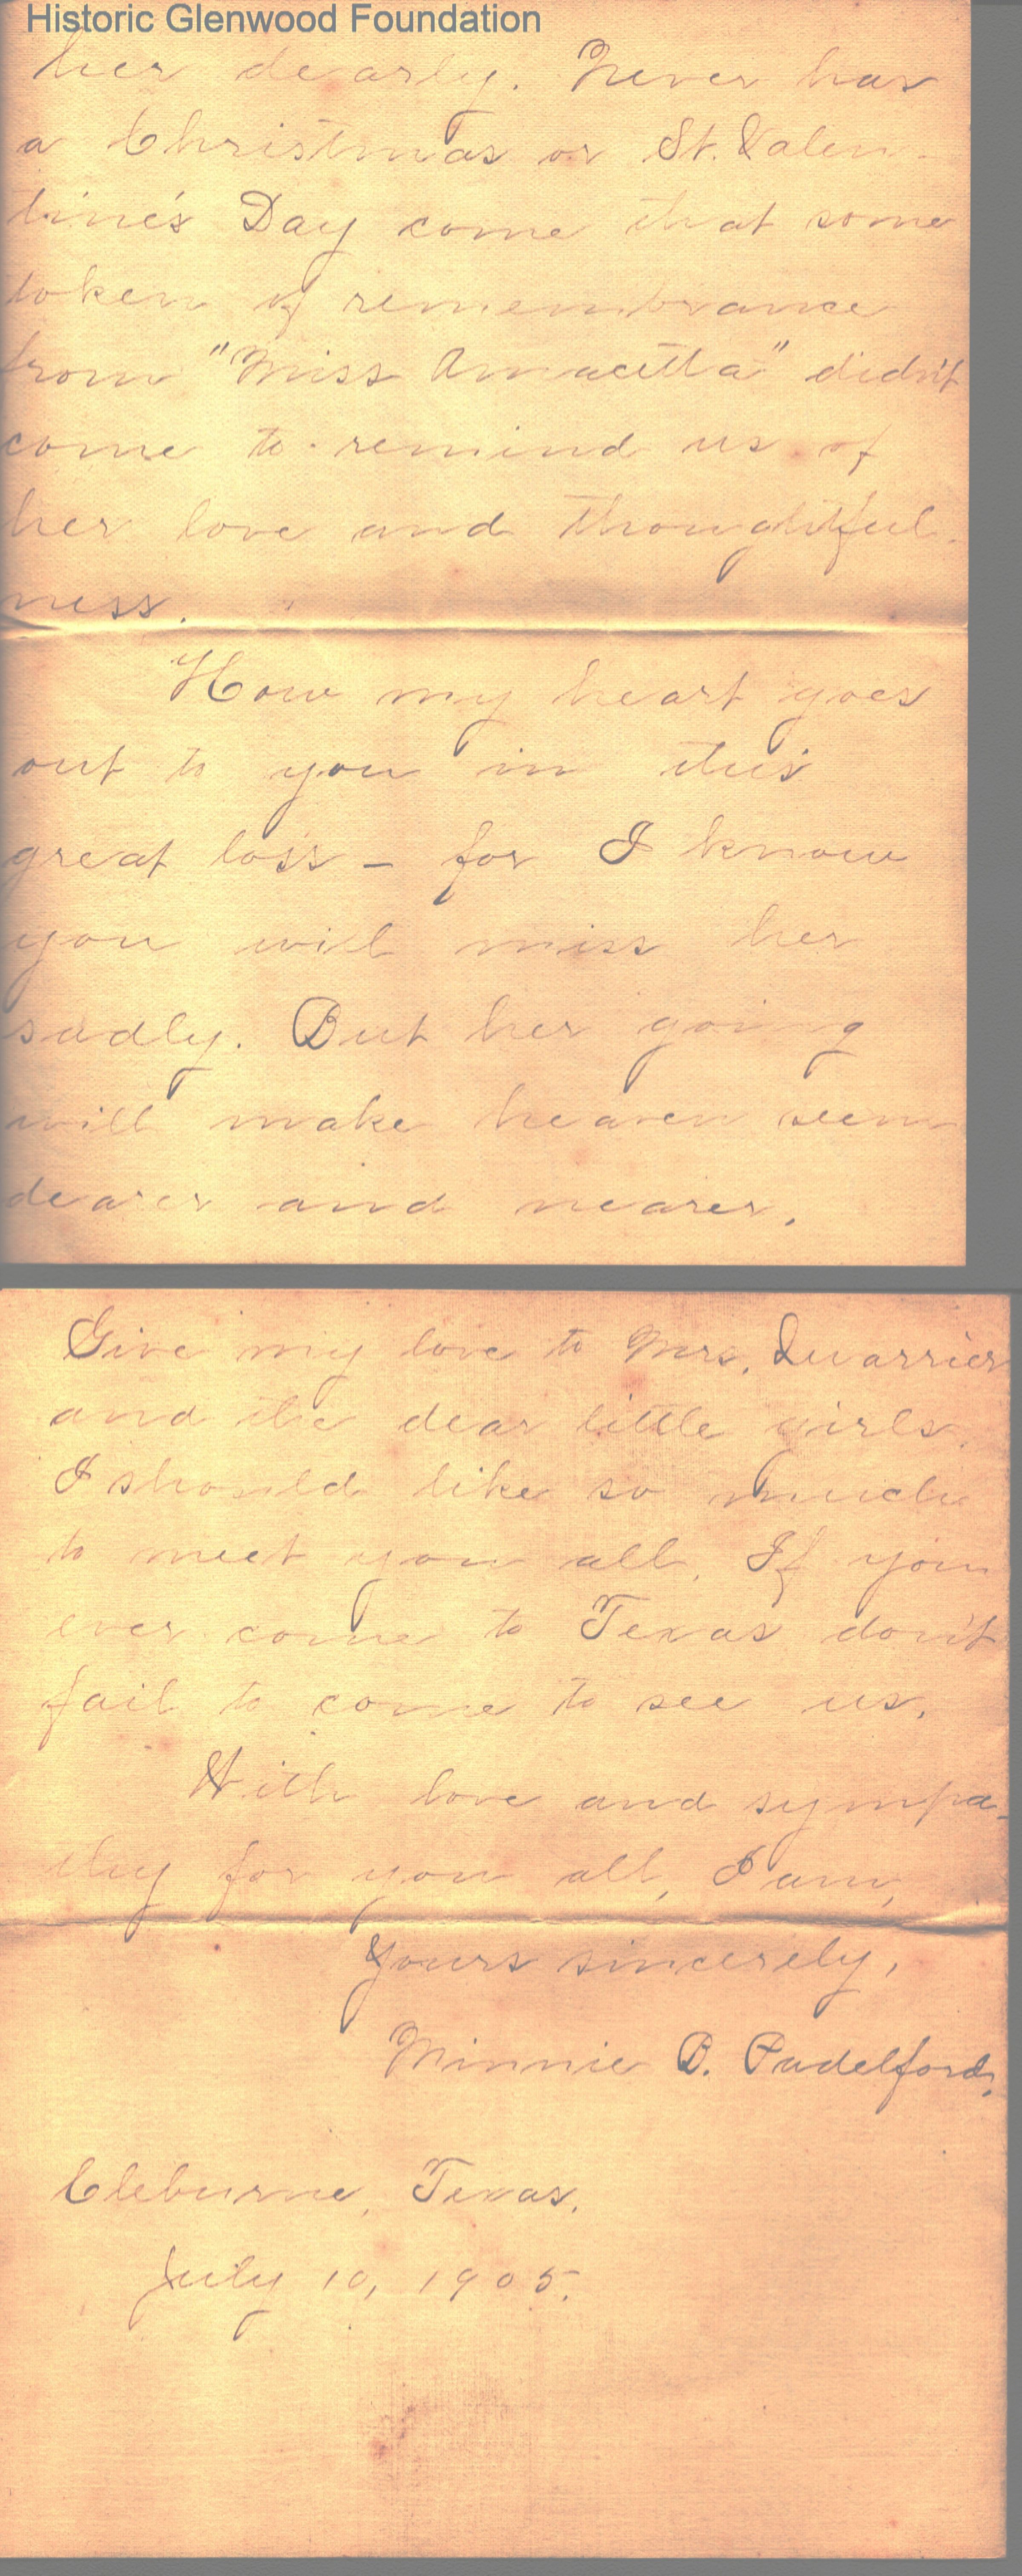 Historic Glenwood Foundation
her dearly. Never has
a Christmas or St. Valen-
tine's Day come that some
token of remembrance
from "Miss Amacetta" didn't
come to remind us of
her love and thoughtful-
ness.
How my heart goes
out to you in this
great loss - for I know
you will miss her
sadly. But her going
will make heaven seem
dearer and nearer.
Give my love to Mrs. Quarrier
and the dear little girls.
I should like so much
to meet you all. If you
ever come to Texas don't
fail to come to see us.
With love and sympa-
thy for you all, I am,
Yours sincerely,
Minnie B. Padelford.
Cleburne, Texas.
July 10, 1905.